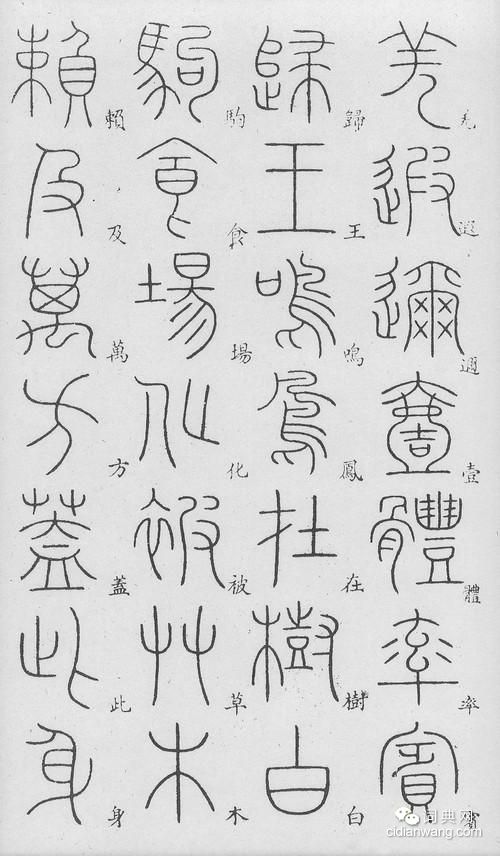 羌遐邇壹體率賓
歸王鳴鳳在樹白
駒食場化被草木
賴及萬方蓋此身
词典网
cidianwang.com